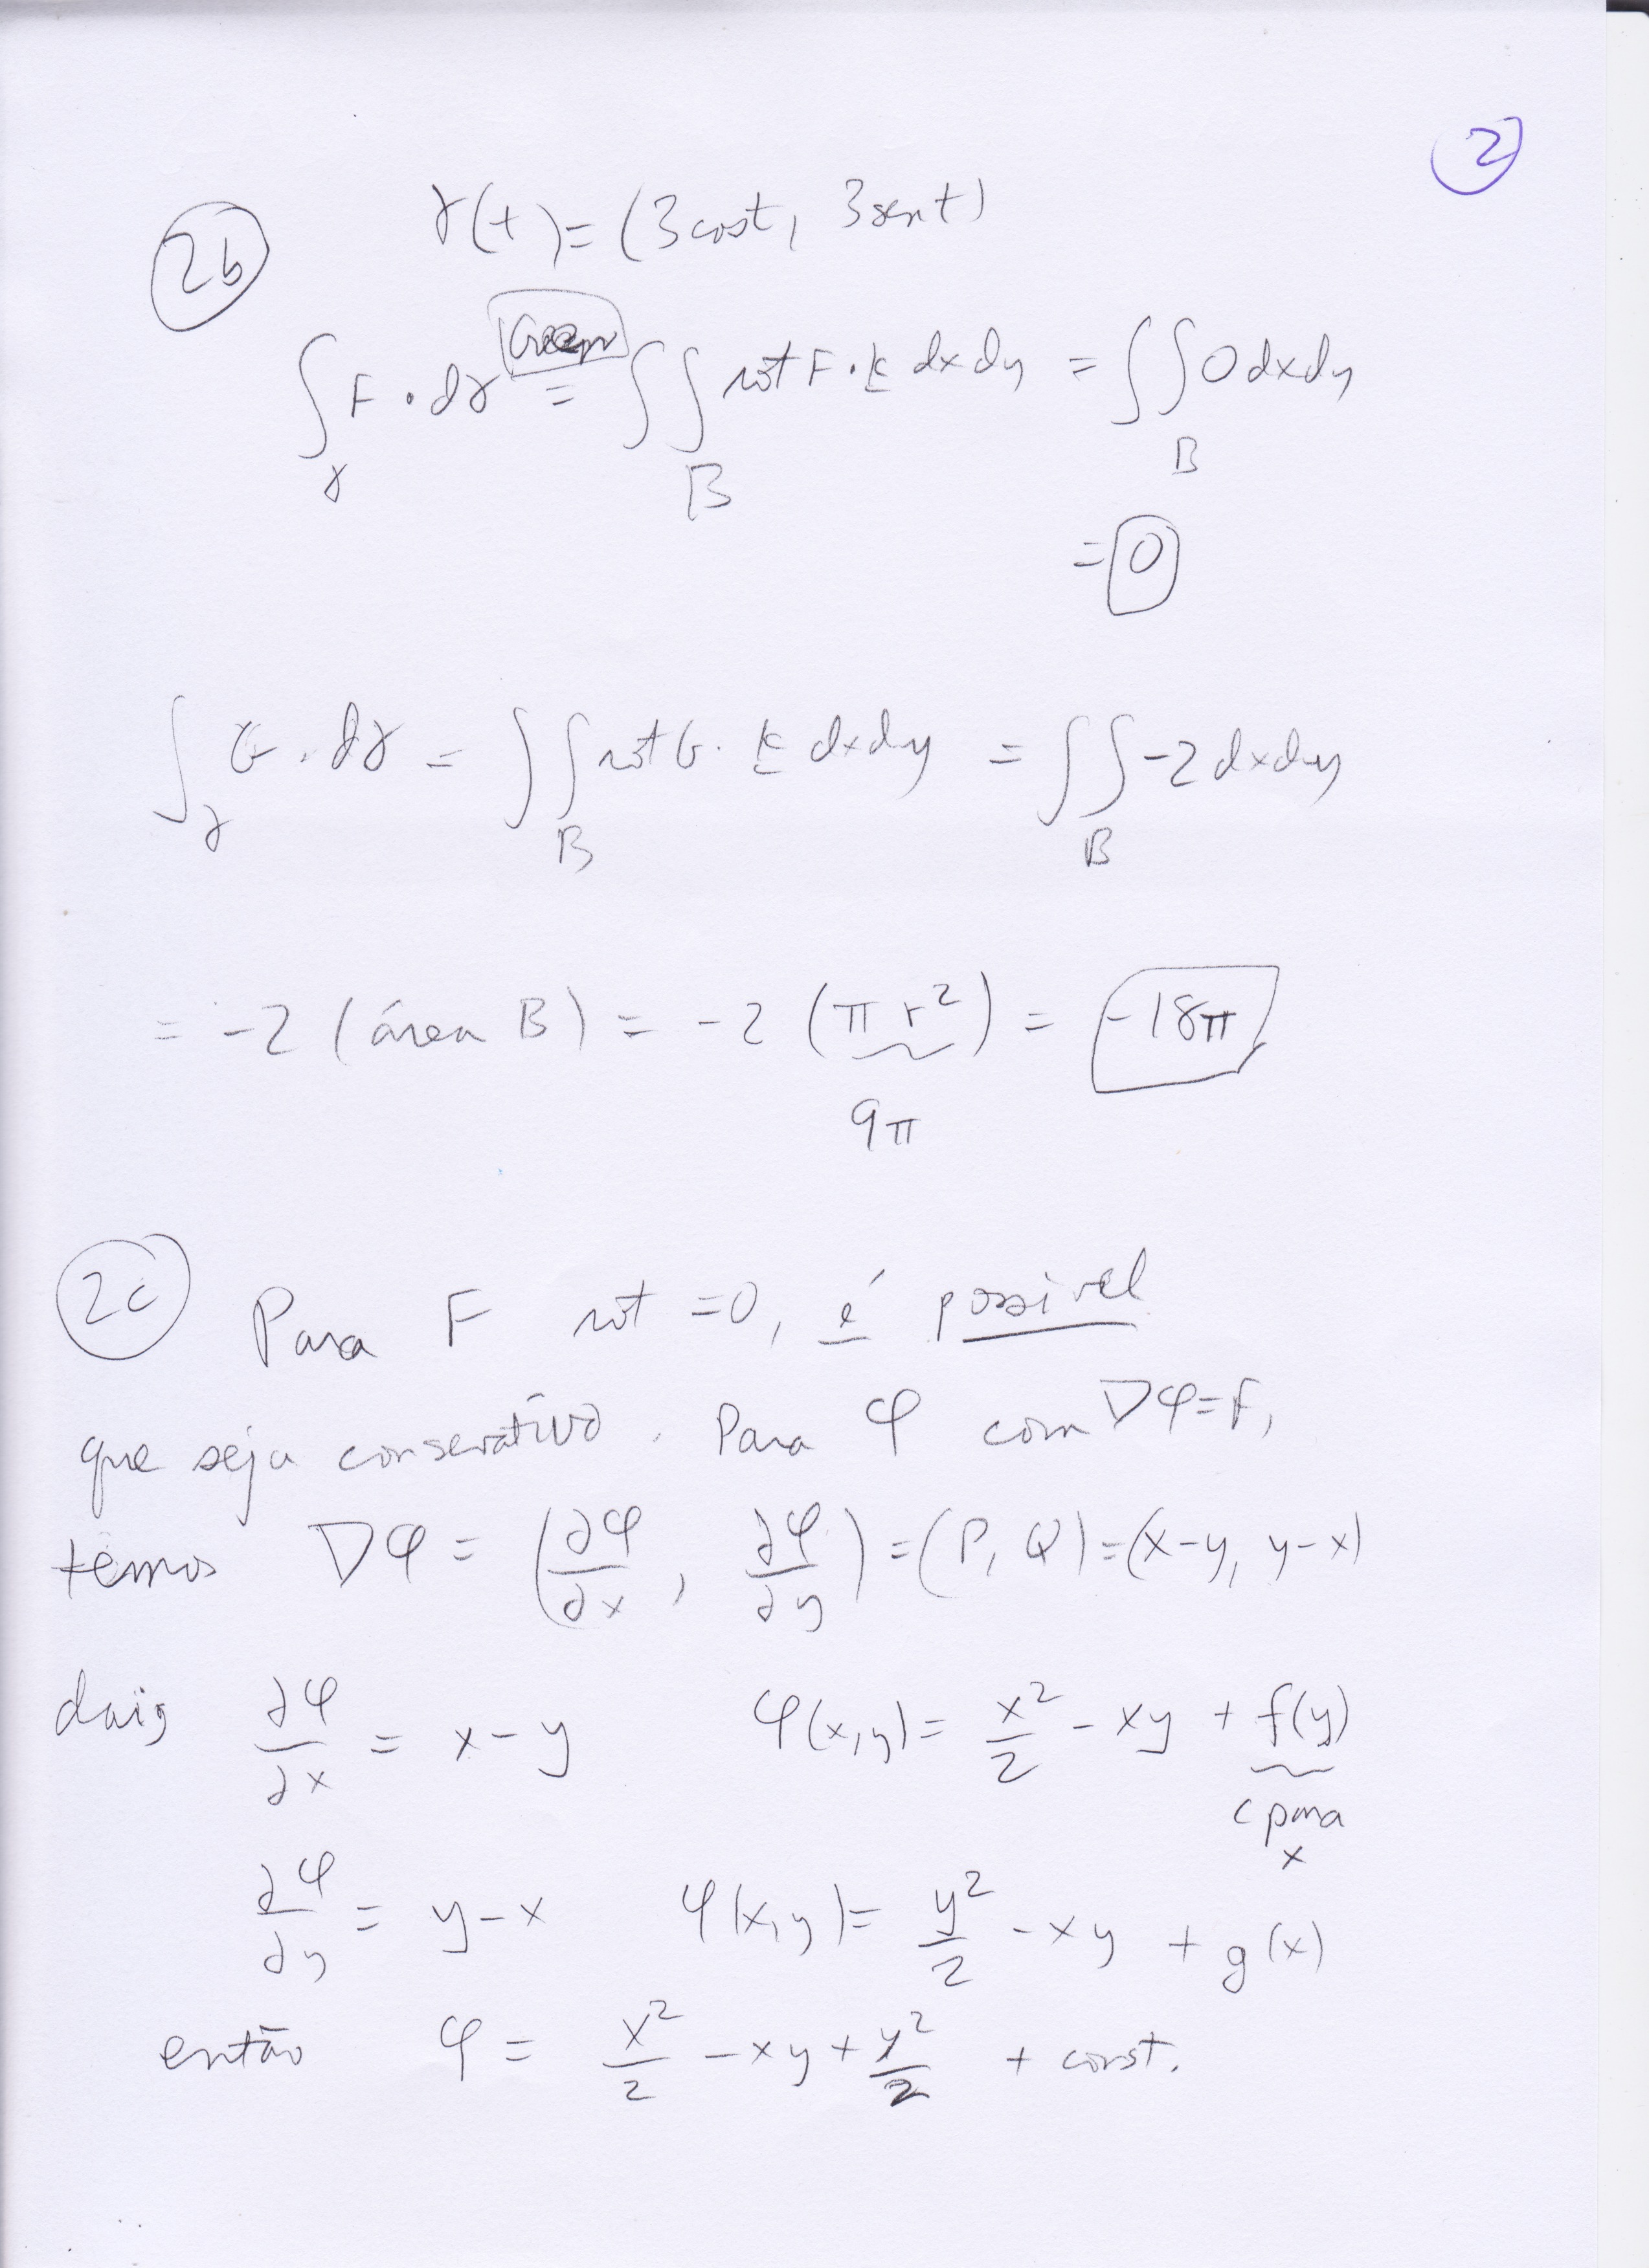 2
2b γ(t) = (3cost, 3sent)
∫_γ F · dγ =[Green] ∫∫_B rot F · k dxdy = ∫∫_B 0 dxdy
= 0
∫_γ G · dγ = ∫∫_B rot G · k dxdy = ∫∫_B -2 dxdy
= -2 (área B) = -2 (π r²) = -18π
9π
2c Para F rot = 0, é possivel
que seja conservativo. Para φ com ∇φ = F,
temos ∇φ = (∂φ/∂x, ∂φ/∂y) = (P, Q) = (x-y, y-x)
daí, ∂φ/∂x = x-y φ(x,y) = x²/2 - xy + f(y)
c para
x
∂φ/∂y = y-x φ(x,y) = y²/2 - xy + g(x)
então φ = x²/2 - xy + y²/2 + const.